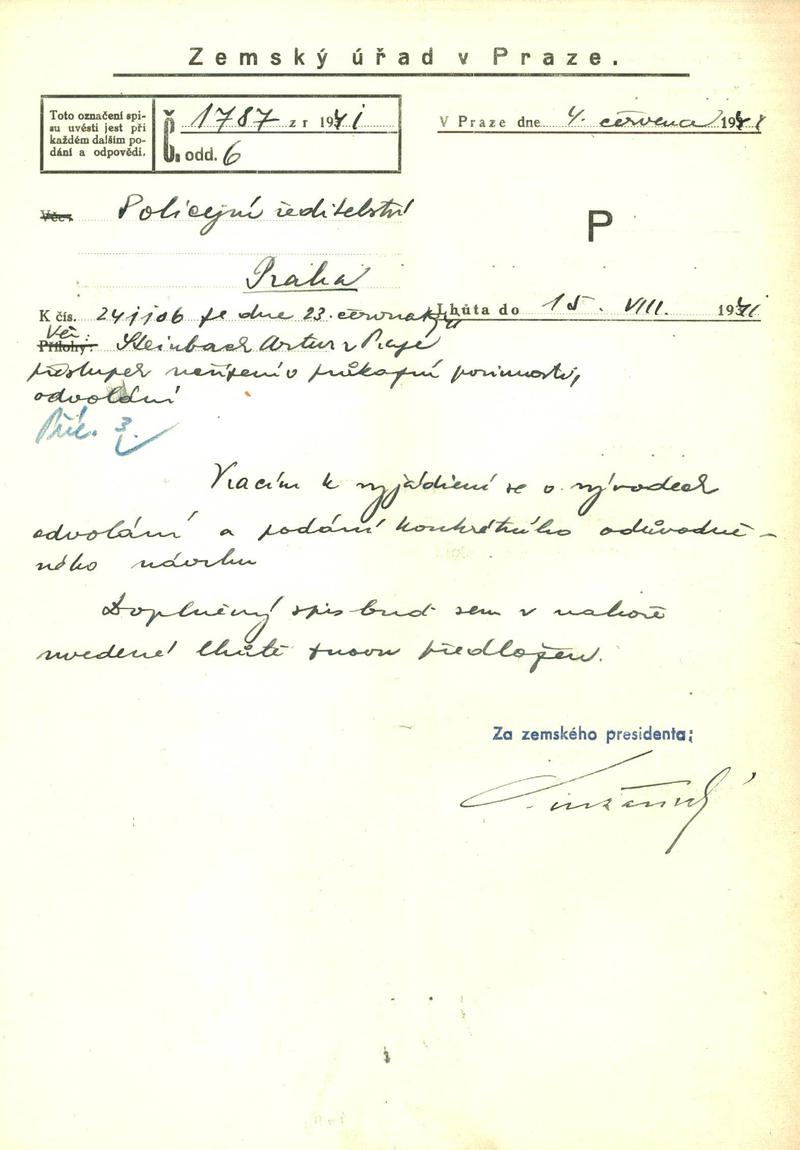 Zemský úřad v Praze.
Toto označení spi-
su uvésti jest při
každém dalším po-
dání a odpovědi.
Č. 1787 z r 1941
odd. 6
V Praze dne 4. června 1941
Věc:
Policejní ředitelství
P
Praha
K čís. 241106 ze dne 23. června
Lhůta do 15. VIII. 1941
Věc:
Přílohy: Steinbach Artur z Prahy
přestupek nařízení o průkazní povinnosti,
odvolání
Příl. 3
Vracím k vyjádření se o vývodech
odvolání a podání konkrétního odůvodně-
ného návrhu
Doplněný spis buď sem v nahoře
uvedené lhůtě znovu předložen.
Za zemského presidenta: